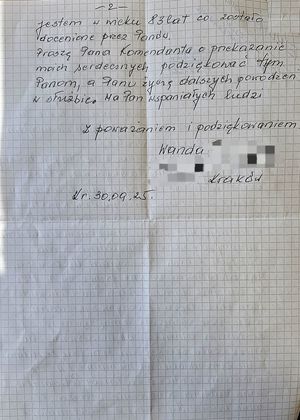 – 2 –
jestem w wieku 83 lat co zostało
docenione przez Panów.
Proszę Pana Komendanta o przekazanie
moich serdecznych podziękowań tym
Panom, a Panu życzę dalszych powodzeń
w służbie. Ma Pan wspaniałych ludzi
Z poważaniem i podziękowaniem
Wanda
Kraków
Kr. 30.09.25.